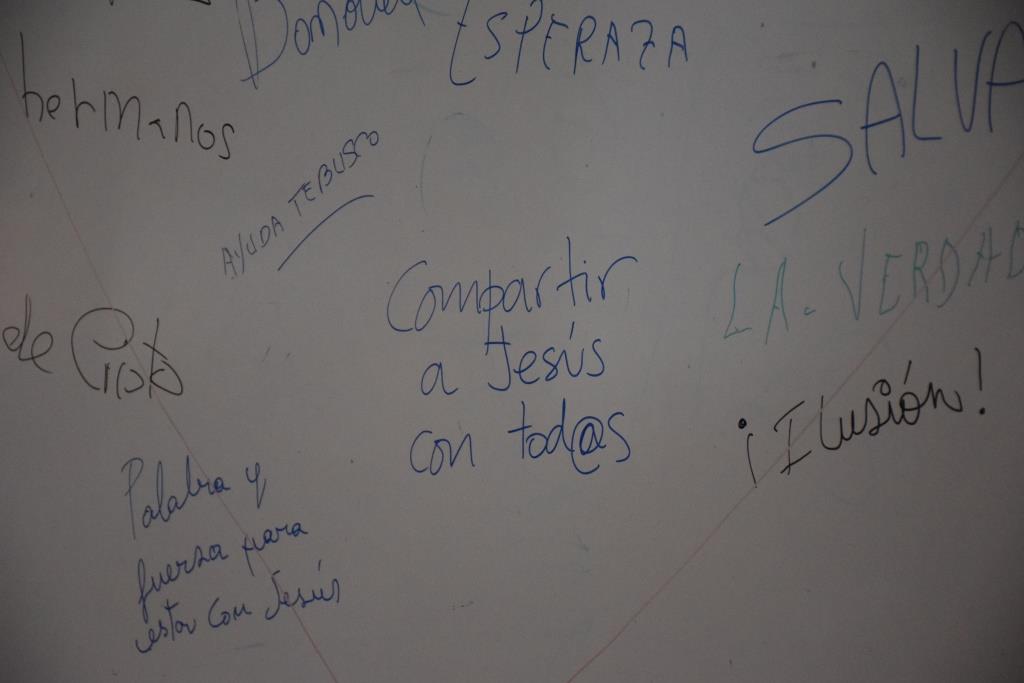 ESPERAZA
hermanos
SALVA
AYUDA TE BUSCO
LA. VERDAD
Compartir
a Jesús
con tod@s
de
¡Ilusión!
Palabra y
fuerza para
estar con Jesús